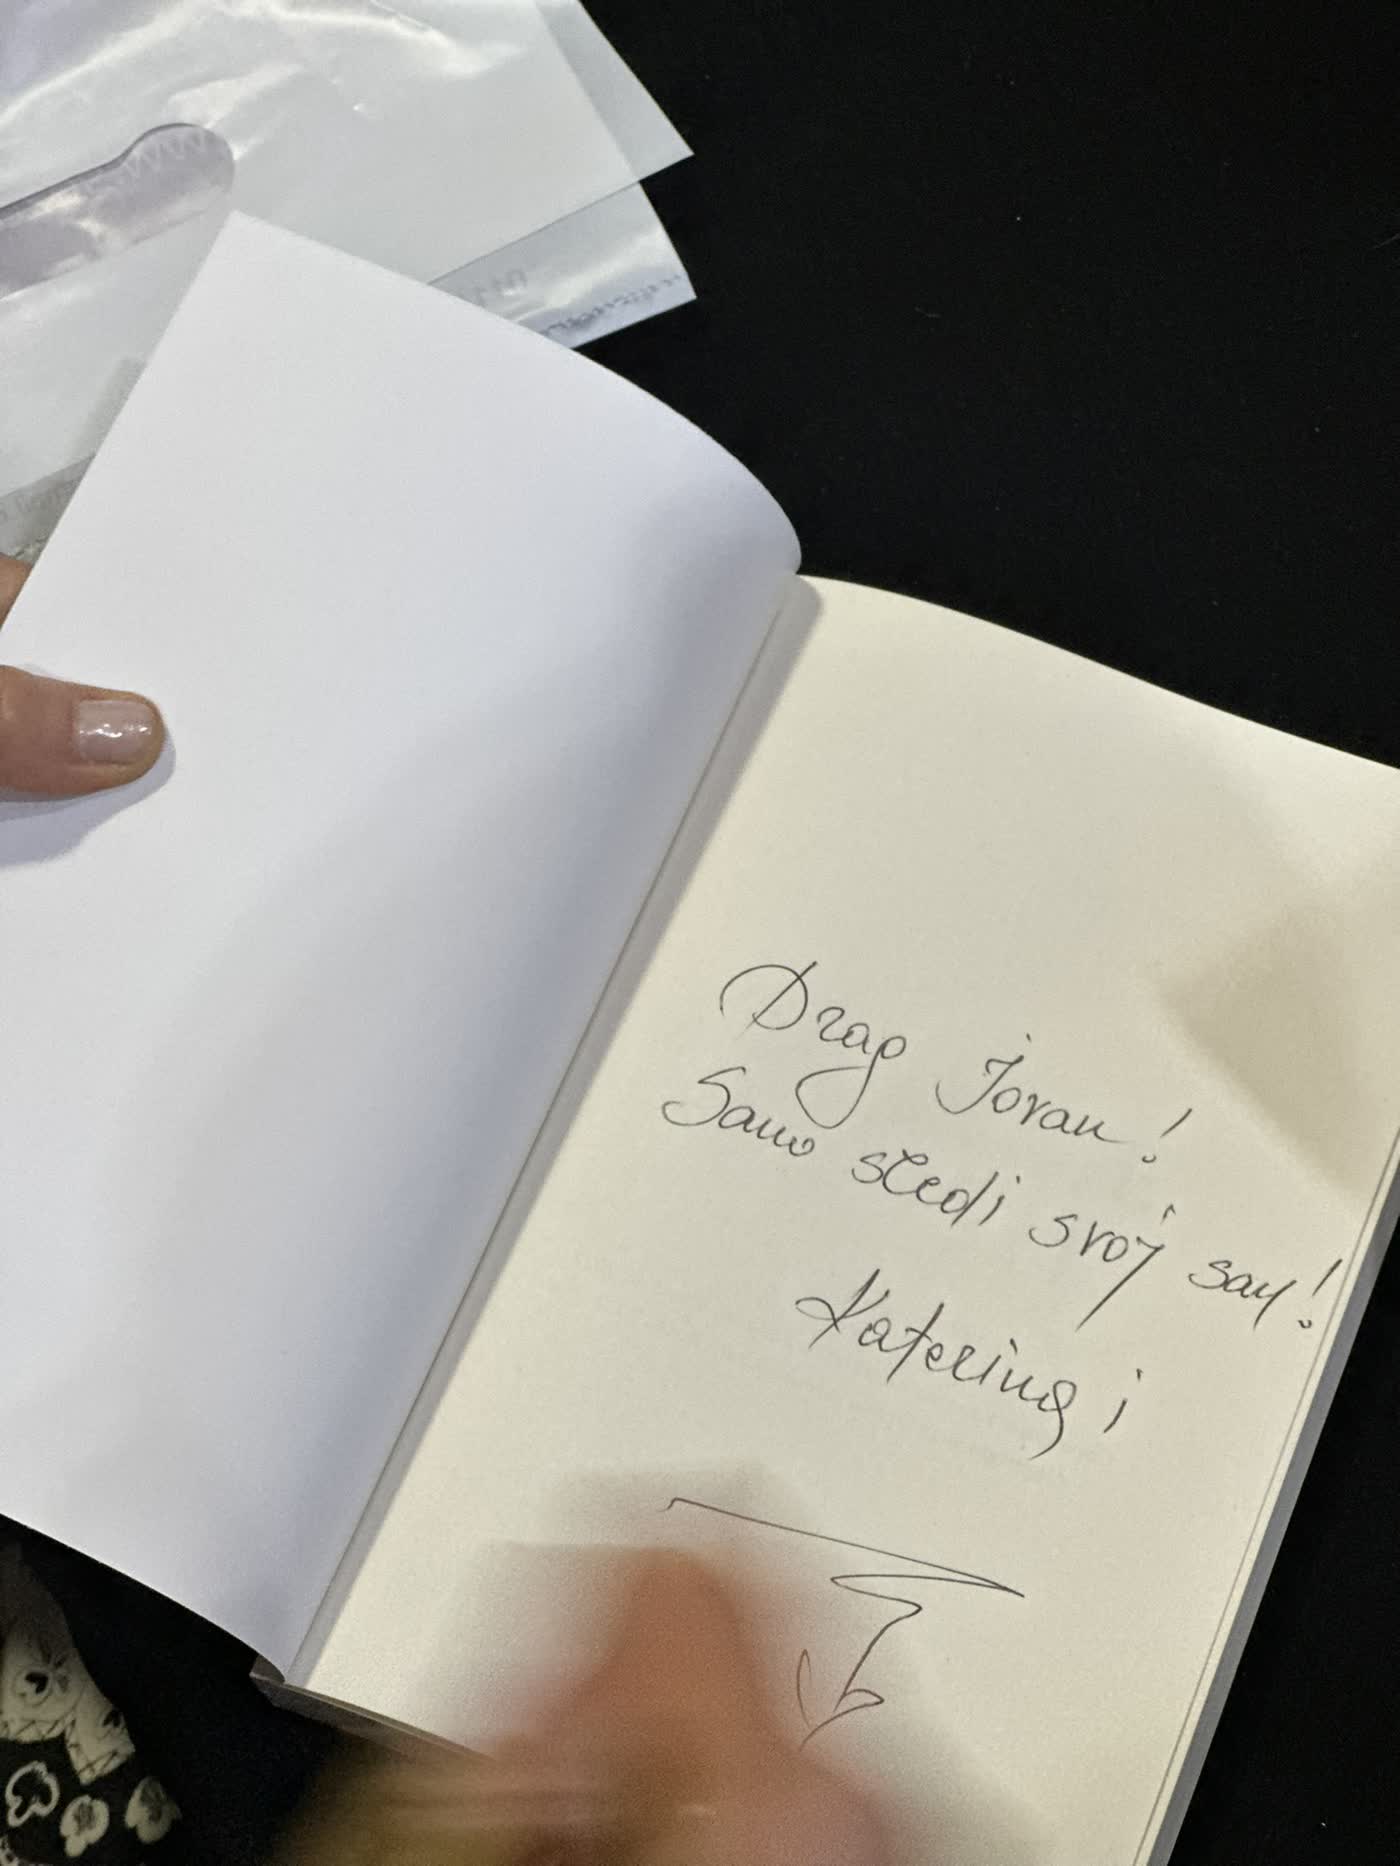 Drag Jovan!
Samo sledi svoj san!
Katerina i